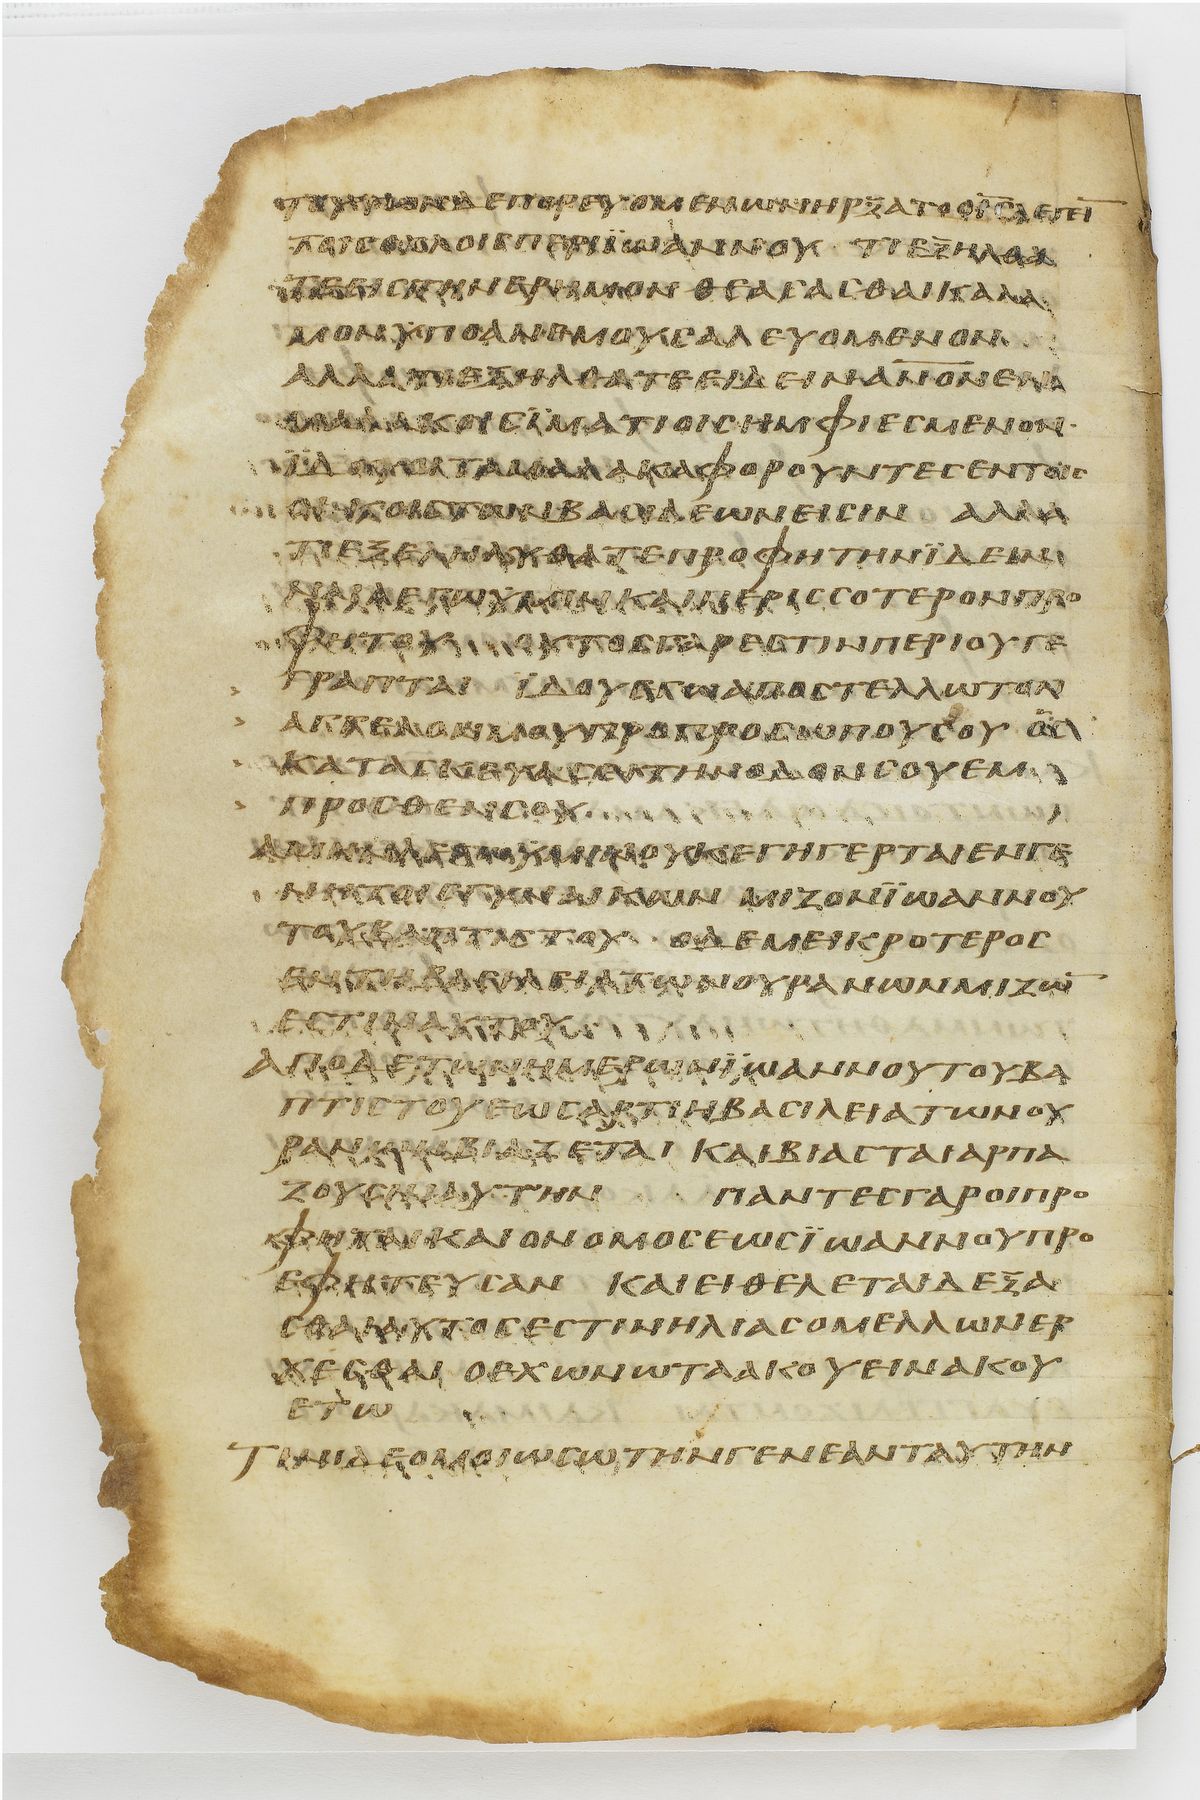 ΤΟΥΤΩΝΔΕΠΟΡΕΥΟΜΕΝΩΝΗΡΞΑΤΟΟΙ̅Ϲ̅ΛΕΓΕΙ̅
ΤΟΙϹΟΧΛΟΙϹΠΕΡΙΪΩΑΝΝΟΥ ΤΙΕΞΗΛΘΑ
ΤΕΕΙϹΤΗΝΕΡΗΜΟΝΘΕΑϹΑϹΘΑΙΚΑΛΑ
ΜΟΝΥΠΟΑΝΕΜΟΥϹΑΛΕΥΟΜΕΝΟΝ
ΑΛΛΑΤΙΕΞΗΛΘΑΤΕΕΙΔΕΙΝΑ̅Ν̅Ο̅Ν̅ΕΝ
ΜΑΛΑΚΟΙϹΪΜΑΤΙΟΙϹΗΜΦΙΕϹΜΕΝΟΝ·
ΪΔΟΥΟΙΤΑΜΑΛΑΚΑΦΟΡΟΥΝΤΕϹΕΝΤΟΙϹ
ΟΙΚΟΙϹΤΩΝΒΑϹΙΛΕΩΝΕΙϹΙΝ ΑΛΛΑ
ΤΙΕΞΗΛΘΑΤΕΠΡΟΦΗΤΗΝΪΔΕΙΝ
ΝΑΙΛΕΓΩΥΜΙΝΚΑΙΠΕΡΙϹϹΟΤΕΡΟΝΠΡΟ
ΦΗΤΟΥ ΟΥΤΟϹΓΑΡΕϹΤΙΝΠΕΡΙΟΥΓΕ
ΓΡΑΠΤΑΙ ΪΔΟΥΕΓΩΑΠΟϹΤΕΛΛΩΤΟΝ
ΑΓΓΕΛΟΝΜΟΥΠΡΟΠΡΟϹΩΠΟΥϹΟΥ ΟϹ
ΚΑΤΑϹΚΕΥΑϹΕΙΤΗΝΟΔΟΝϹΟΥΕΜ
ΠΡΟϹΘΕΝϹΟΥ
ΑΜΗΝΛΕΓΩΥΜΙΝΟΥΚΕΓΗΓΕΡΤΑΙΕΝΓΕ
ΝΝΗΤΟΙϹΓΥΝΑΙΚΩΝΜΙΖΟΝΪΩΑΝΝΟΥ
ΤΟΥΒΑΠΤΙϹΤΟΥ ΟΔΕΜΕΙΚΡΟΤΕΡΟϹ
ΕΝΤΗΒΑϹΙΛΕΙΑΤΩΝΟΥΡΑΝΩΝΜΙΖΩ̅
ΕϹΤΙΝΑΥΤΟΥ
ΑΠΟΔΕΤΩΝΗΜΕΡΩΝΪΩΑΝΝΟΥΤΟΥΒΑ
ΠΤΙϹΤΟΥΕΩϹΑΡΤΙΗΒΑϹΙΛΕΙΑΤΩΝΟΥ
ΡΑΝΩΝΒΙΑΖΕΤΑΙ ΚΑΙΒΙΑϹΤΑΙΑΡΠΑ
ΖΟΥϹΙΝΑΥΤΗΝ ΠΑΝΤΕϹΓΑΡΟΙΠΡΟ
ΦΗΤΑΙΚΑΙΟΝΟΜΟϹΕΩϹΪΩΑΝΝΟΥΠΡΟ
ΕΦΗΤΕΥϹΑΝ ΚΑΙΕΙΘΕΛΕΤΑΙΔΕΞΑ
ϹΘΑΙΑΥΤΟϹΕϹΤΙΝΗΛΙΑϹΟΜΕΛΛΩΝΕΡ
ΧΕϹΘΑΙ ΟΕΧΩΝΩΤΑΑΚΟΥΕΙΝΑΚΟΥ
ΕΤΩ
ΤΙΝΙΔΕΟΜΟΙΩϹΩΤΗΝΓΕΝΕΑΝΤΑΥΤΗΝ